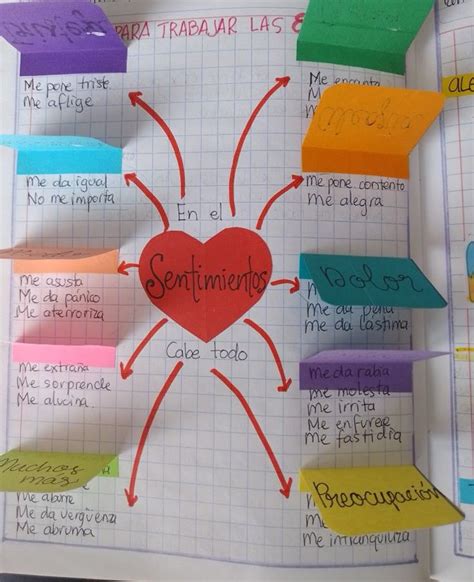 PARA TRABAJAR LAS
Me pone triste
Me aflige
Me encanta
Me da igual
No me importa
Me pone contento
Me alegra
En el
Sentimientos
Cabe todo
Me asusta
Me da pánico
Me aterroriza
Dolor
Me da pena
Me da lástima
Me extraña
Me sorprende
Me alucina
Me da rabia
Me molesta
Me irrita
Me enfurece
Me fastidia
Muchos
más
Me aburre
Me da vergüenza
Me abruma
Preocupación
Me
Me intranquiliza
ALE